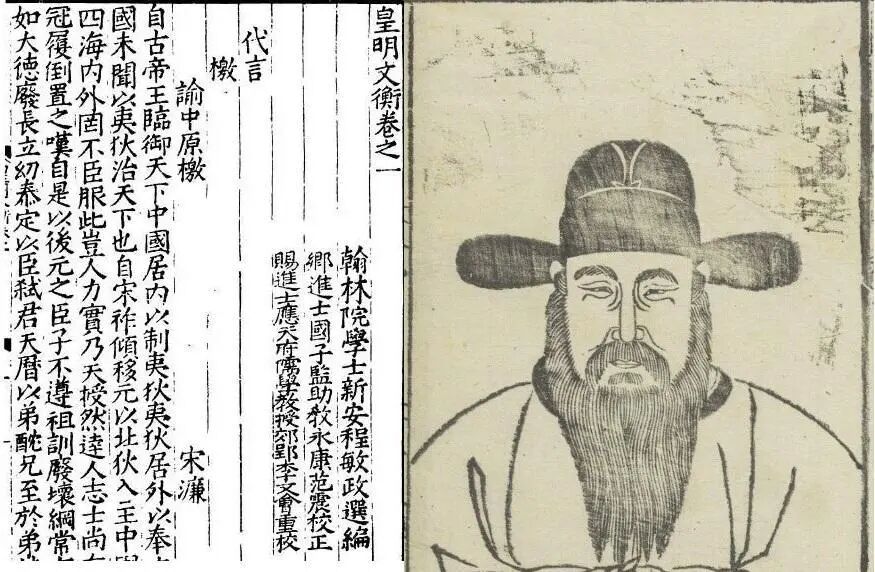 皇明文衡卷之一
翰林院學士新安程敏政選編
鄉進士國子監助教永康范震校正
賜進士應天府儒學教授郊郢李文會重校
代言
檄
諭中原檄 宋濂
自古帝王臨御天下中國居內以制夷狄夷狄居外以奉
國未聞以夷狄治天下也自宋祚傾移元以北狄入主中
四海內外罔不臣服此豈人力實乃天授然達人志士尚
冠履倒置之嘆自是以後元之臣子不遵祖訓廢壞綱常
如大德廢長立幼泰定以臣弒君天曆以弟酖兄至於弟